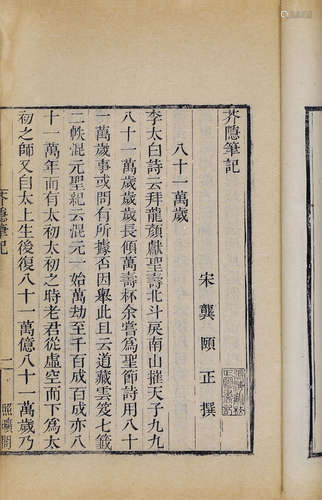 芥隱筆記
宋龔頤正撰
八十一萬歲
李太白詩云拜龍顔獻聖壽北斗戾南山摧天子九九
八十一萬歲歲長傾萬壽杯余嘗爲聖節詩用八十
一萬歲事或問有所據否因舉此且云道藏雲笈七籤
二帙混元聖紀云混元一始萬劫至千百成百成亦八
十一萬年而有太初太初之時老君從虛空而下爲太
初之師又曰太上生後復八十一萬億八十一萬歲乃
芥隱筆記
一
照曠閣